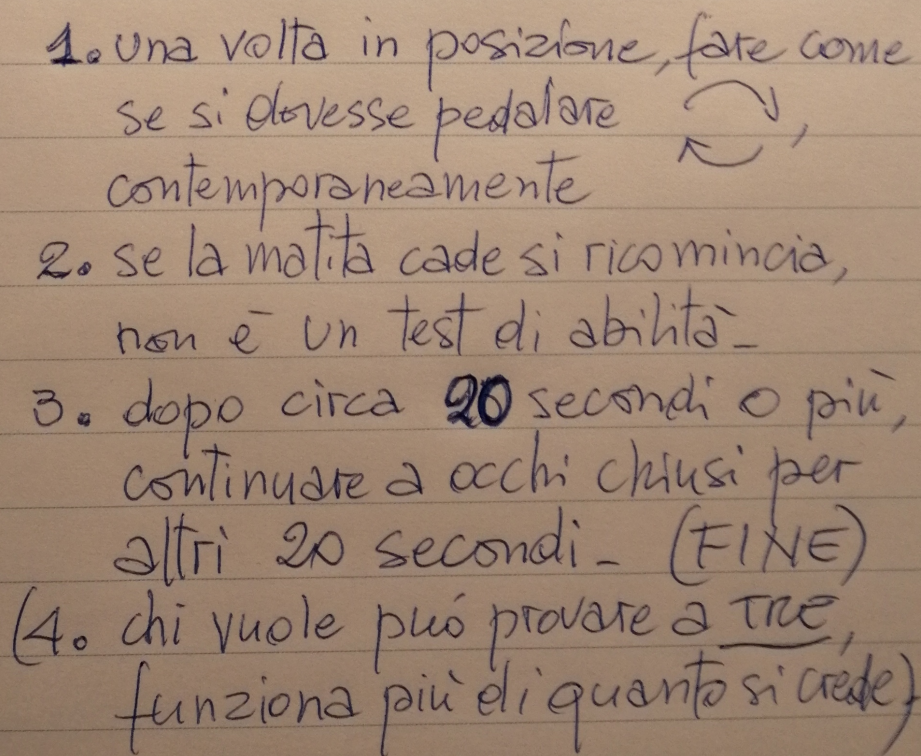 1. una volta in posizione, fare come
se si dovesse pedalare ,
contemporaneamente
2. se la matita cade si ricomincia,
non è un test di abilità-
3. dopo circa 20 secondi o più,
continuare a occhi chiusi per
altri 20 secondi- (FINE)
(4. chi vuole può provare a TRE,
funziona più di quanto si crede)